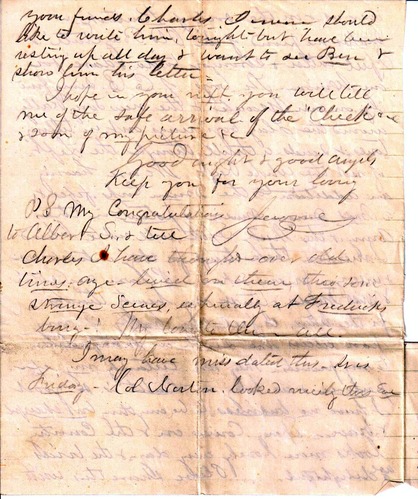 your friend. Charles. I should
like to write him, tonight but have been
resting up all day & want to see Ben &
show him this letter
I hope in your next you will tell
me of the safe arrival of the "Check" &c
& soon of my picture &c
Good night & good angels
Keep you for your loving
Jerome
P.S My Congratulations
to Albert S. & tell
Charles I have thought over old
times. aye - lived in them those
strange Scenes, especially at Fredericks
burg-! My love to them all.
I may have miss dated this. It is
Friday - Col Norton looked nicely this Eve